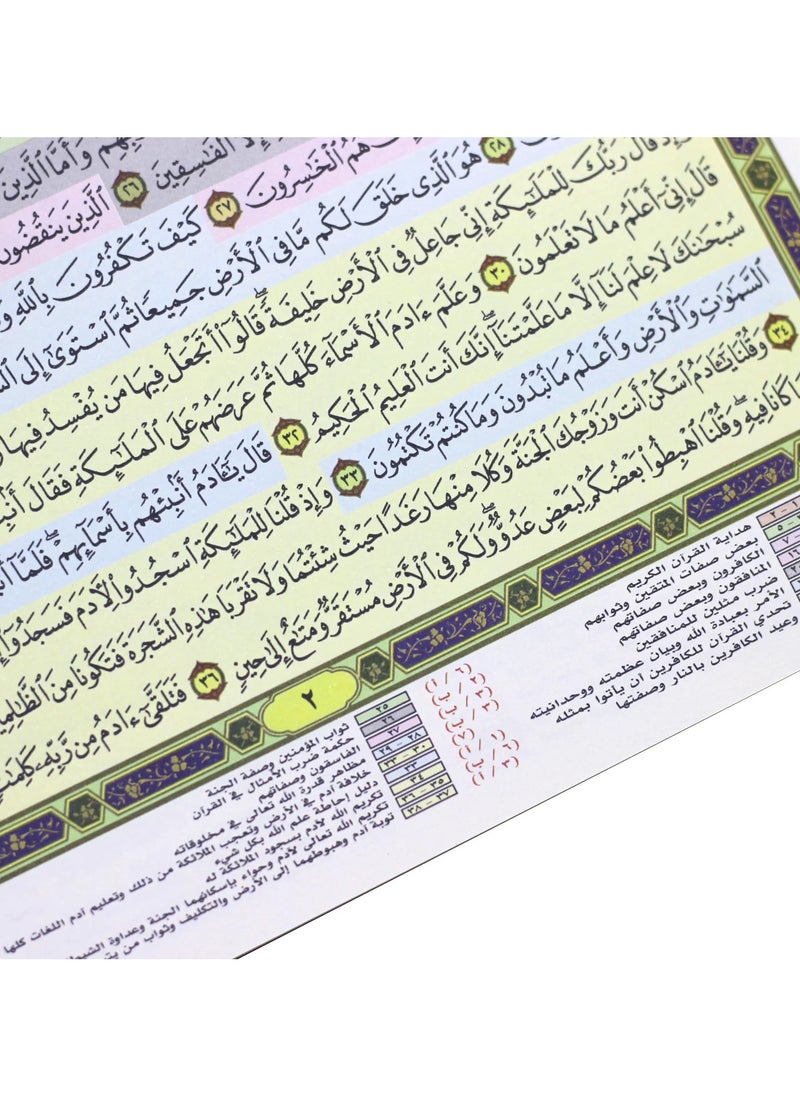 بِهِمْ وَأَمَّا الَّذِينَ
إِلَّا الْفَاسِقِينَ ٢٦ الَّذِينَ يَنقُضُونَ
هُمُ الْخَاسِرُونَ ٢٧ كَيْفَ تَكْفُرُونَ بِاللَّهِ
٢٨ هُوَ الَّذِى خَلَقَ لَكُم مَّا فِى الْأَرْضِ جَمِيعًا ثُمَّ اسْتَوَىٰ إِلَى
قَالَ رَبُّكَ لِلْمَلَٰٓئِكَةِ إِنِّى جَاعِلٌ فِى الْأَرْضِ خَلِيفَةً قَالُوٓا۟ أَتَجْعَلُ فِيهَا مَن يُفْسِدُ فِيهَا
قَالَ إِنِّىٓ أَعْلَمُ مَا لَا تَعْلَمُونَ ٣٠ وَعَلَّمَ ءَادَمَ الْأَسْمَآءَ كُلَّهَا ثُمَّ عَرَضَهُمْ عَلَى الْمَلَٰٓئِكَةِ فَقَالَ
سُبْحَٰنَكَ لَا عِلْمَ لَنَآ إِلَّا مَا عَلَّمْتَنَآ إِنَّكَ أَنتَ الْعَلِيمُ الْحَكِيمُ ٣٢ قَالَ يَٰٓـَٔادَمُ أَنۢبِئْهُم بِأَسْمَآئِهِمْ فَلَمَّآ
السَّمَٰوَٰتِ وَالْأَرْضِ وَأَعْلَمُ مَا تُبْدُونَ وَمَا كُنتُمْ تَكْتُمُونَ ٣٣ وَإِذْ قُلْنَا لِلْمَلَٰٓئِكَةِ اسْجُدُوا۟ لِءَادَمَ فَسَجَدُوٓا۟
٣٤ وَقُلْنَا يَٰٓـَٔادَمُ اسْكُنْ أَنتَ وَزَوْجُكَ الْجَنَّةَ وَكُلَا مِنْهَا رَغَدًا حَيْثُ شِئْتُمَا وَلَا تَقْرَبَا هَٰذِهِ الشَّجَرَةَ فَتَكُونَا مِنَ الظَّٰلِمِينَ
كَانَا فِيهِ وَقُلْنَا اهْبِطُوا۟ بَعْضُكُمْ لِبَعْضٍ عَدُوٌّ وَلَكُمْ فِى الْأَرْضِ مُسْتَقَرٌّ وَمَتَٰعٌ إِلَىٰ حِينٍ ٣٦ فَتَلَقَّىٰٓ ءَادَمُ مِن رَّبِّهِۦ كَلِمَٰتٍ
٢
هداية القرآن الكريم
بعض صفات المتقين وثوابهم
الكافرون وبعض صفاتهم
المنافقون وبعض صفاتهم
ضرب مثلين للمنافقين
الأمر بعبادة الله وبيان عظمته ووحدانيته
تحدي القرآن للكافرين أن يأتوا بمثله
وعيد الكافرين بالنار وصفتها
٢٥ ثواب المؤمنين وصفة الجنة
٢٦ حكمة ضرب الأمثال في القرآن
٢٧ الفاسقون وصفاتهم
٢٨ - ٢٩ مظاهر قدرة الله تعالى في مخلوقاته
٣٠ - ٣٢ خلافة آدم في الأرض وتعجب الملائكة من ذلك وتعليم آدم اللغات كلها
٣٣ دليل إحاطة علم الله بكل شيء
٣٤ تكريم الله لآدم بسجود الملائكة له
٣٥ - ٣٦ تكريم الله تعالى لآدم وحواء بإسكانهما الجنة وعداوة
٣٧ - ٣٨ توبة آدم وهبوطهما إلى الأرض والتكليف وثواب من